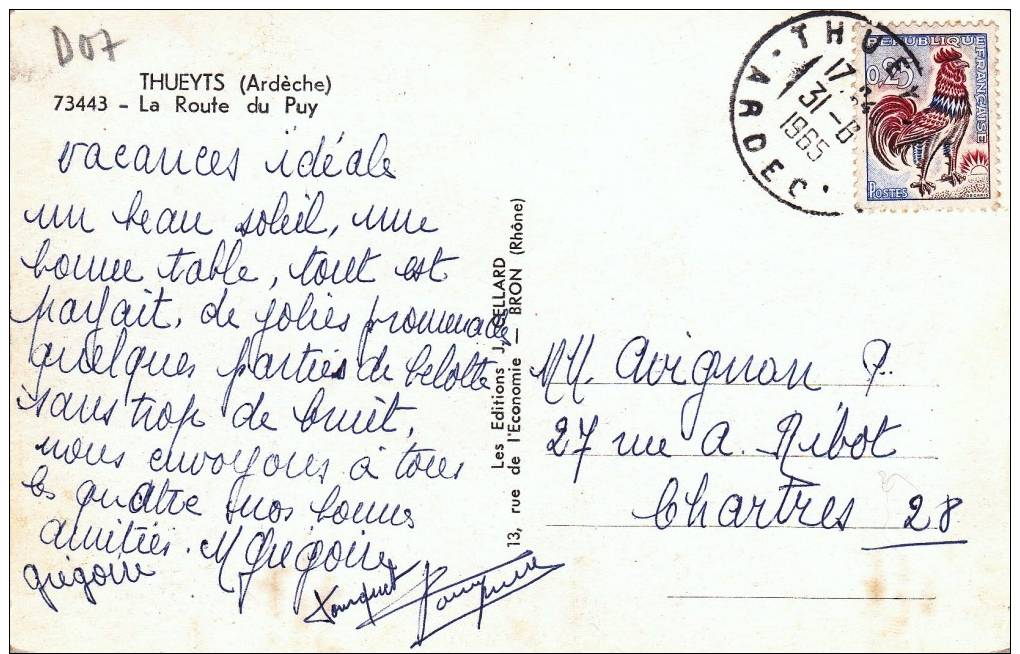 D07
THUEYTS (Ardèche)
73443 - La Route du Puy
vacances idéale
un beau soleil, une
bonne table, tout est
parfait, de jolies promenades
quelques parties de belotte
sans trop de bruit,
nous envoyons à tous
les quatre nos bonnes
amitiés. M Grégoire
grégoire
Les Editions J. CELLARD
13, rue de l'Economie — BRON (Rhône)
THUEY
17
31-8
1965
ARDEC
REPUBLIQUE FRANÇAISE
0,25
POSTES
DECARIS
MM. Avignon P.
27 rue A. Ribot
Chartres 28